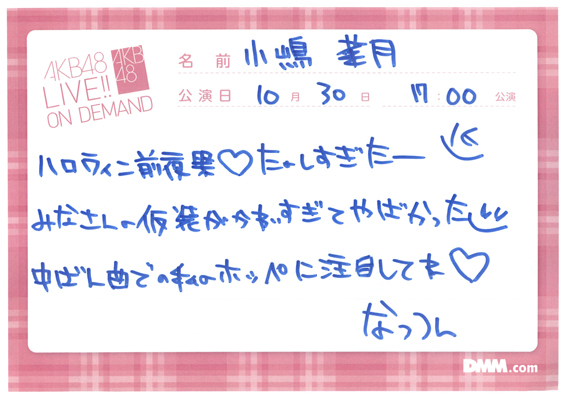 AKB48
LIVE!!
ON DEMAND
AKB
48
名前 小嶋 菜月
公演日 10月 30日 17:00 公演
ハロウィン前夜祭♡たのしすぎたー
みなさんの仮装がかわいすぎてやばかった
中ばん曲での私のホッペに注目してネ♡
なっつん
DMM.com